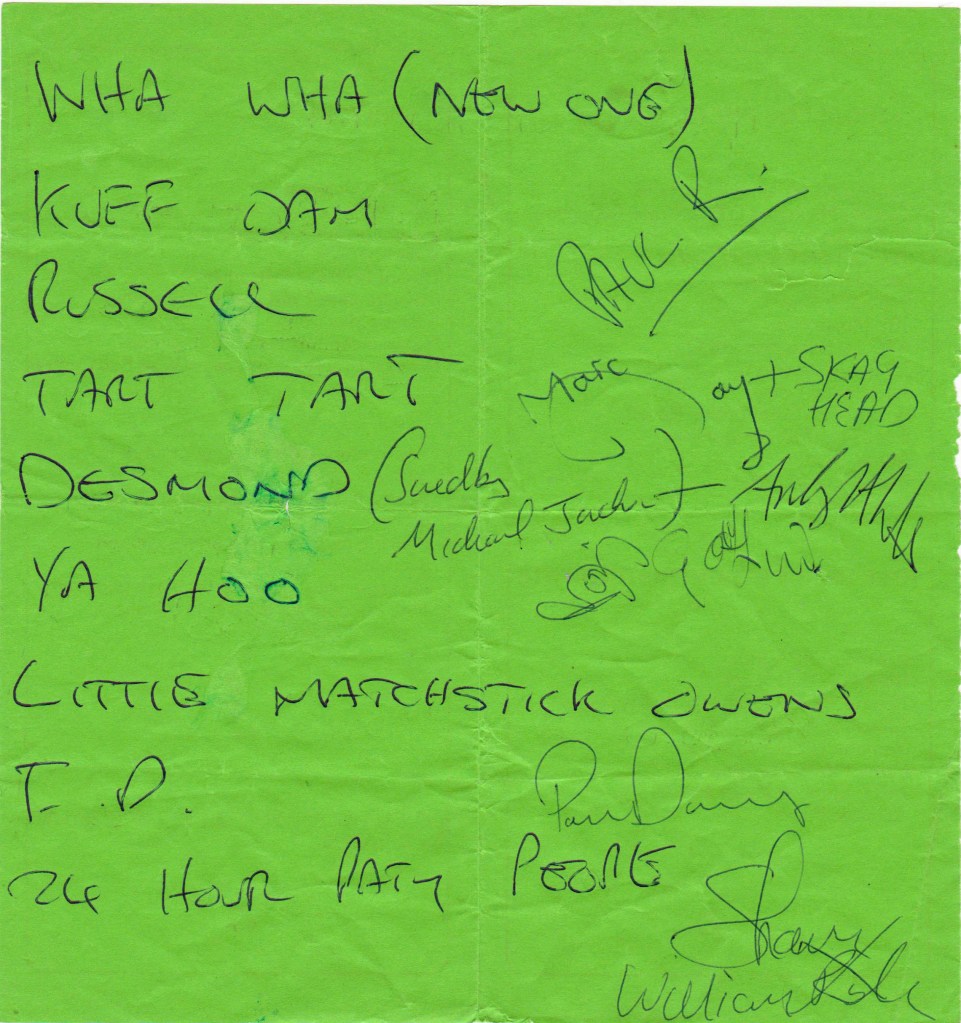 WHA WHA (NEW ONE)
KUFF DAM
PAUL. R.
RUSSELL
TART TART
Marc
SKAG
HEAD
DESMOND (Sued by
Michael Jackson)
YA HOO
LITTLE MATCHSTICK OWENS
T. D.
Paul Davis
24 HOUR PATY PEOPLE
Shaun
William